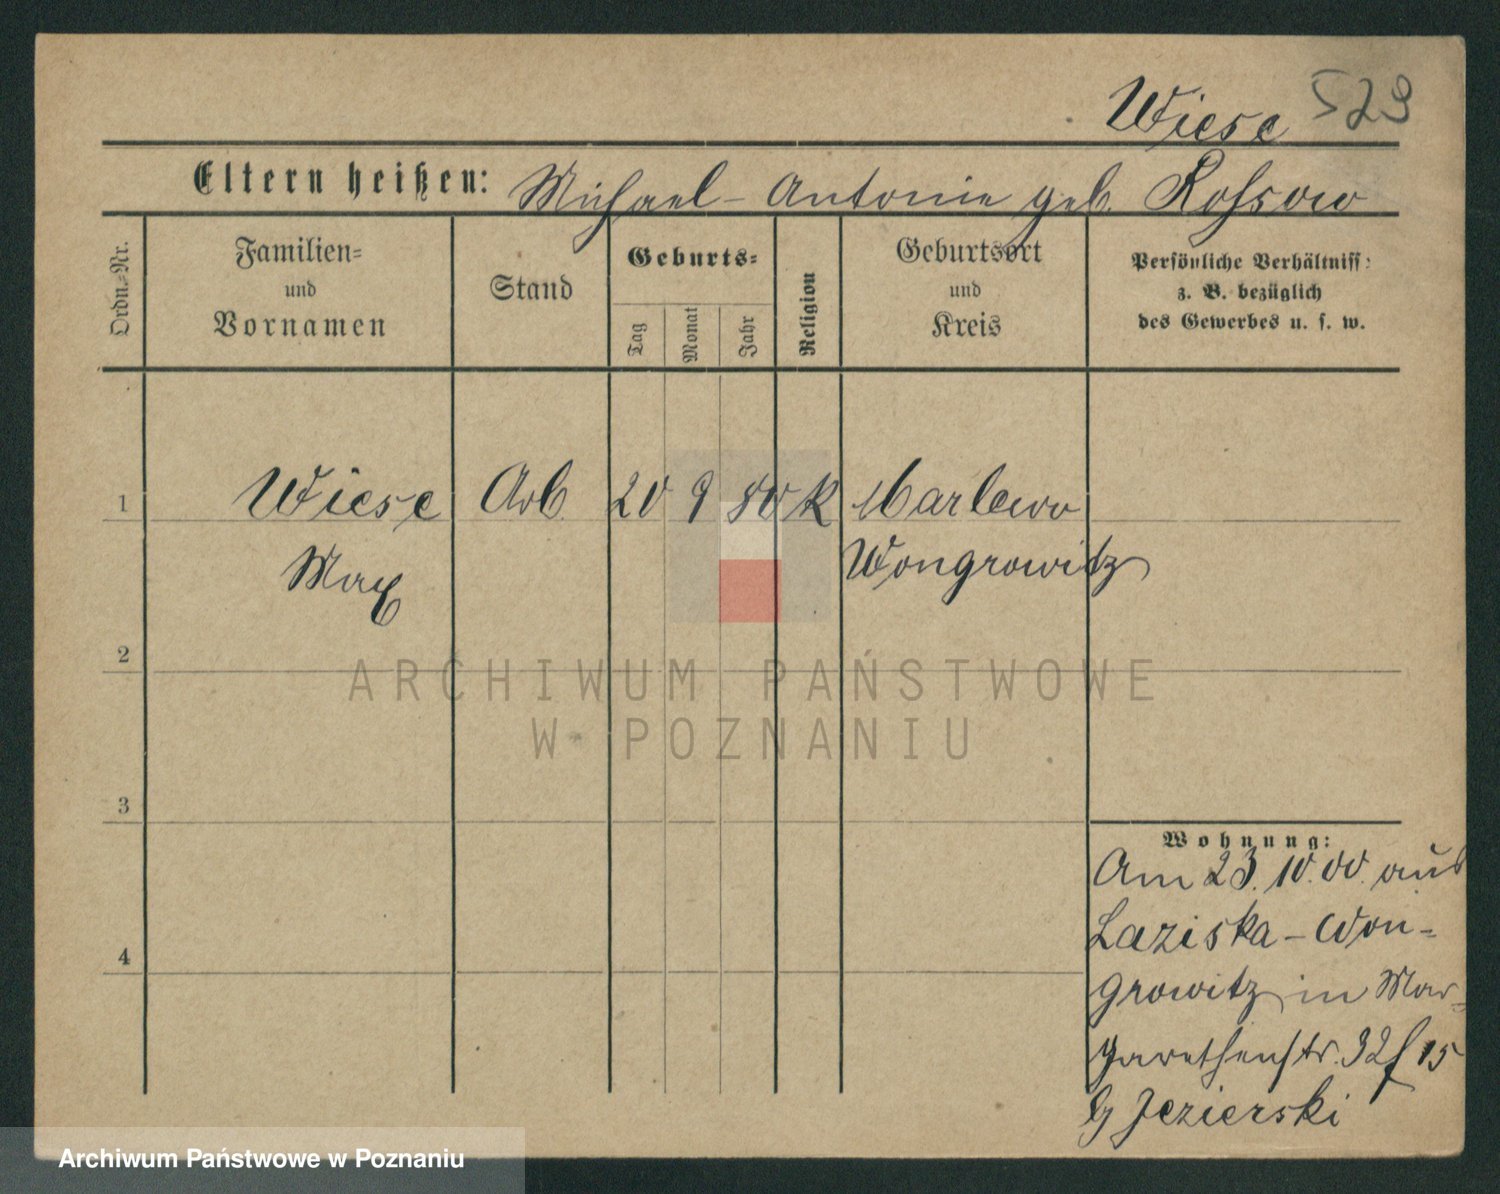 Wiese 529
Eltern heißen: Michael - Antonie geb. Rossow
Ordn.-Nr.
Familien=
und
Vornamen
Stand
Geburts=
Tag
Monat
Jahr
Religion
Geburtsort
und
Kreis
Persönliche Verhältniss:
z. B. bezüglich
des Gewerbes u. s. w.
1 Wiese Arb. 20 9 80 K Marlewo
Max Wongrowitz
2
3
4
ARCHIWUM PAŃSTWOWE
W POZNANIU
Wohnung:
Am 23.10.00. aus
Laziska - Won-
growitz in Mar-
garethenstr. 32 f 15
b/ Jezierski
Archiwum Państwowe w Poznaniu